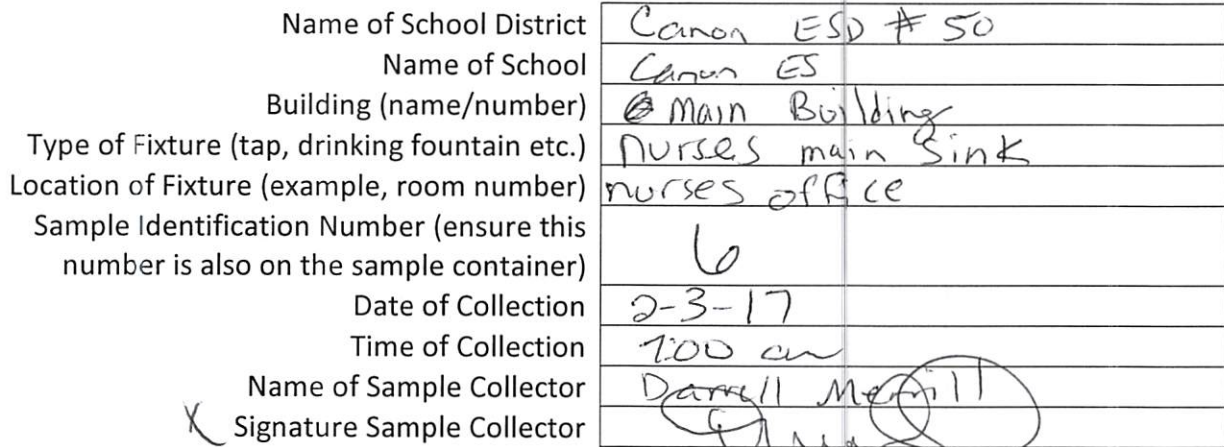 Name of School District Canon ESD # 50
Name of School Canon ES
Building (name/number) Main Building
Type of Fixture (tap, drinking fountain etc.) nurses main sink
Location of Fixture (example, room number) nurses office
Sample Identification Number (ensure this
number is also on the sample container) 6
Date of Collection 2-3-17
Time of Collection 7:00 am
Name of Sample Collector Darrell Merrill
X Signature Sample Collector